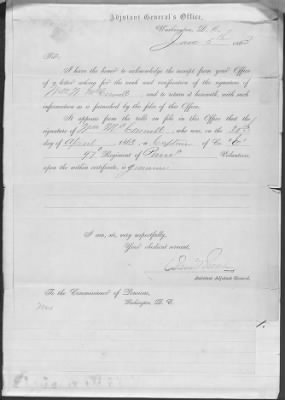 Adjutant General's Office,
Washington, D. C.
June 5th, 186
Sir:
I have the honor to acknowledge the receipt from your Office
of a letter asking for the rank and verification of the signature of
Wm. McConnell and to return it herewith, with such
information as is furnished by the files of this Office.
It appears from the rolls on file in this Office that the
signature of Wm McConnell who was, on the 28th
day of April 1863, a Captain of Co "E"
97th Regiment of Penn Volunteers,
upon the within certificate, is genuine
I am, sir, very respectfully,
Your obedient servant,
Assistant Adjutant General.
To the Commissioner of Pensions,
Washington, D. C.